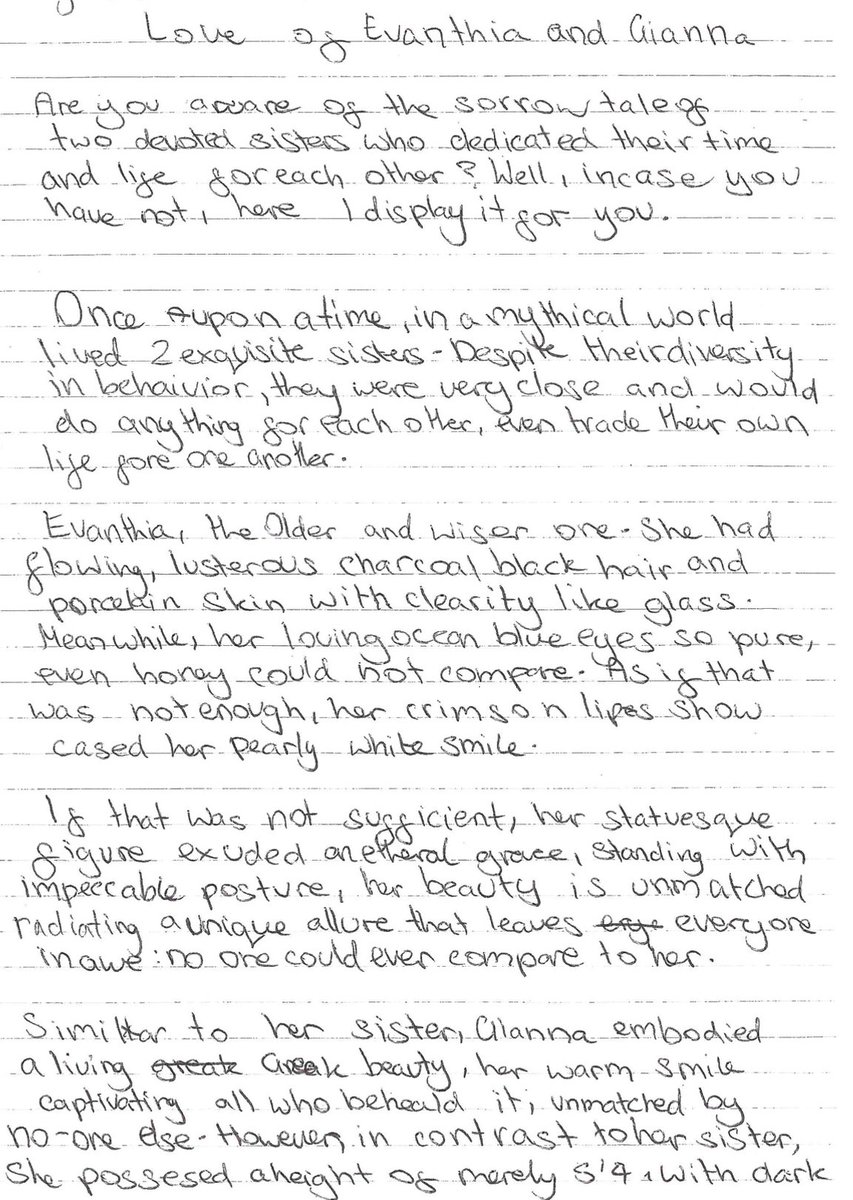 Love of Evanthia and Gianna
Are you aware of the sorrow tale of
two devoted sisters who dedicated their time
and life for each other? Well, incase you
have not, here I display it for you.
Once upon a time, in a mythical world
lived 2 exquisite sisters. Despite their diversity
in behaivior, they were very close and would
do anything for each other, even trade their own
life fore one another.
Evanthia, the Older and wiser one. She had
flowing, lusterous charcoal black hair and
porcelain skin with clearity like glass.
Meanwhile, her loving ocean blue eyes so pure,
even honey could not compare. As if that
was not enough, her crimson lipes show
cased her pearly white smile.
If that was not sufficient, her statuesque
figure exuded an etheral grace, standing with
impeccable posture, her beauty is unmatched
radiating a unique allure that leaves everyone
in awe: no one could ever compare to her.
Similar to her sister, Gianna embodied
a living greate Greek beauty, her warm smile
captivating all who beheald it, unmatched by
no-one else. However, in contrast to her sister,
She possesed a height of merely 5'4, with dark